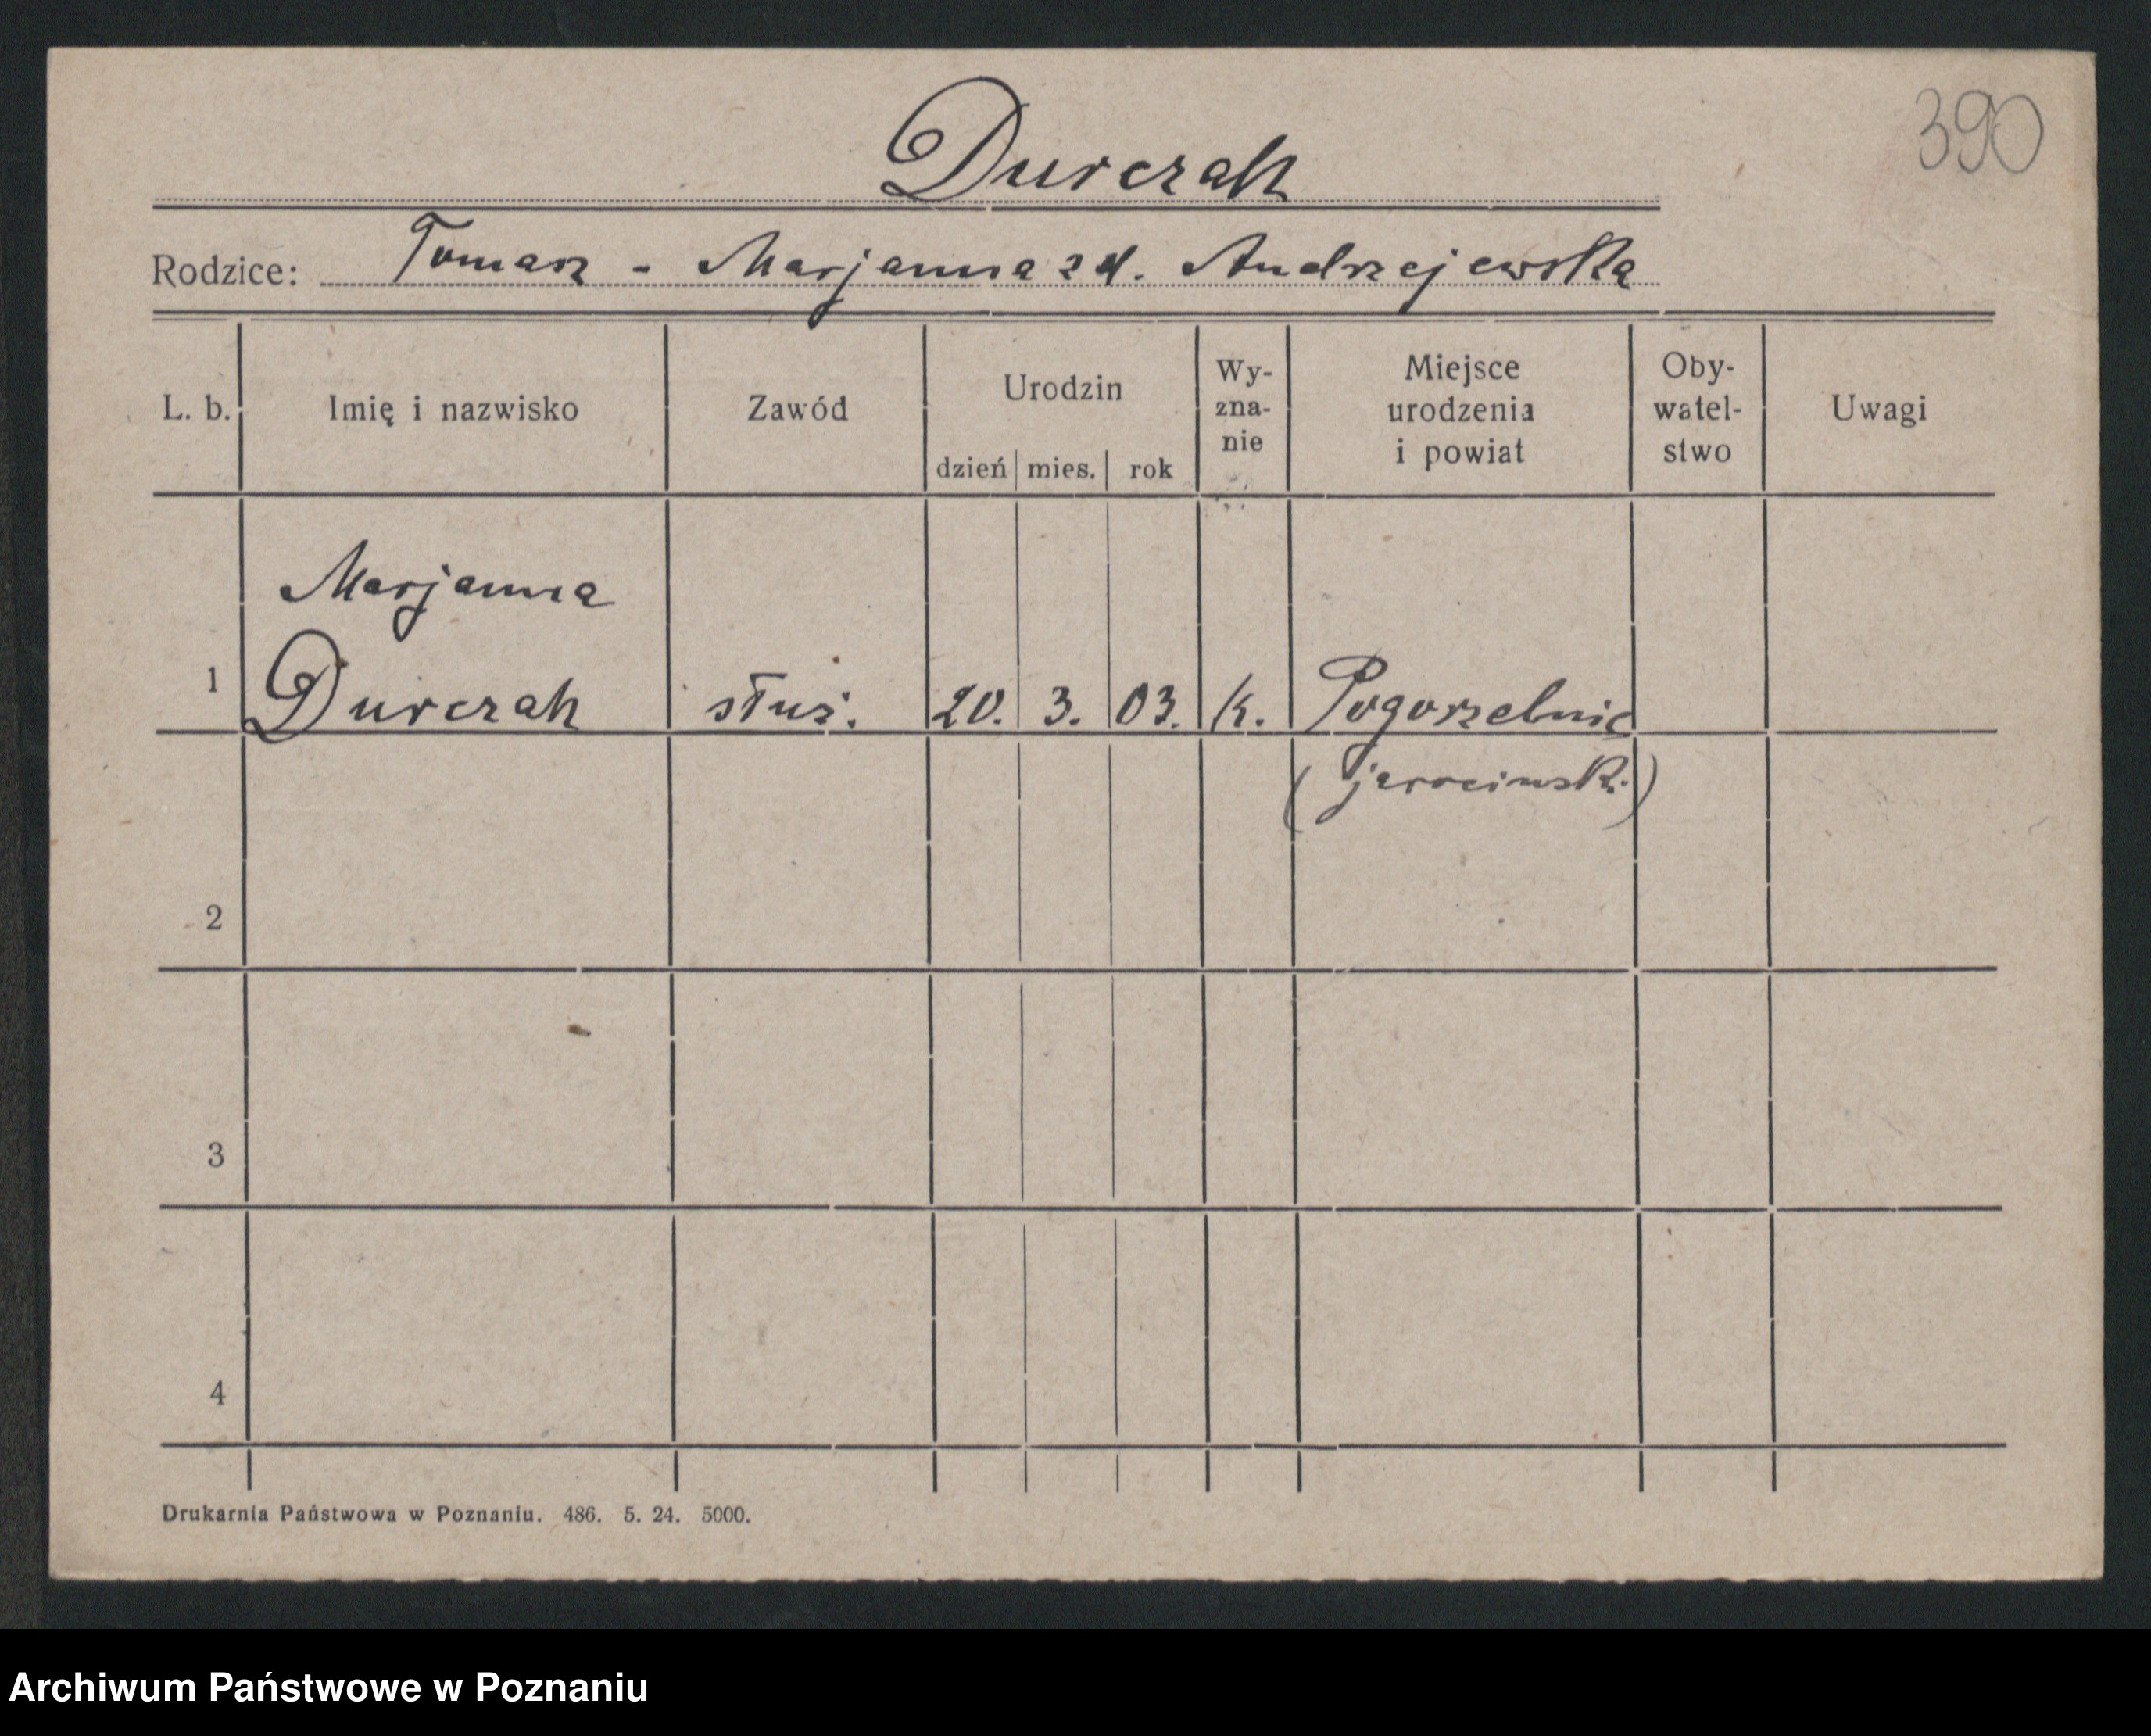 390
Durczak
Rodzice: Tomasz - Marjanna z d. Andrzejewska
L. b. Imię i nazwisko Zawód Urodzin dzień mies. rok Wy- zna- nie Miejsce urodzenia i powiat Oby- watel- stwo Uwagi
Marjanna
1 Durczak służ. 20. 3. 03. k. Pogorzelnic
(jarocinsk.)
2
3
4
Drukarnia Państwowa w Poznaniu. 486. 5. 24. 5000.
Archiwum Państwowe w Poznaniu